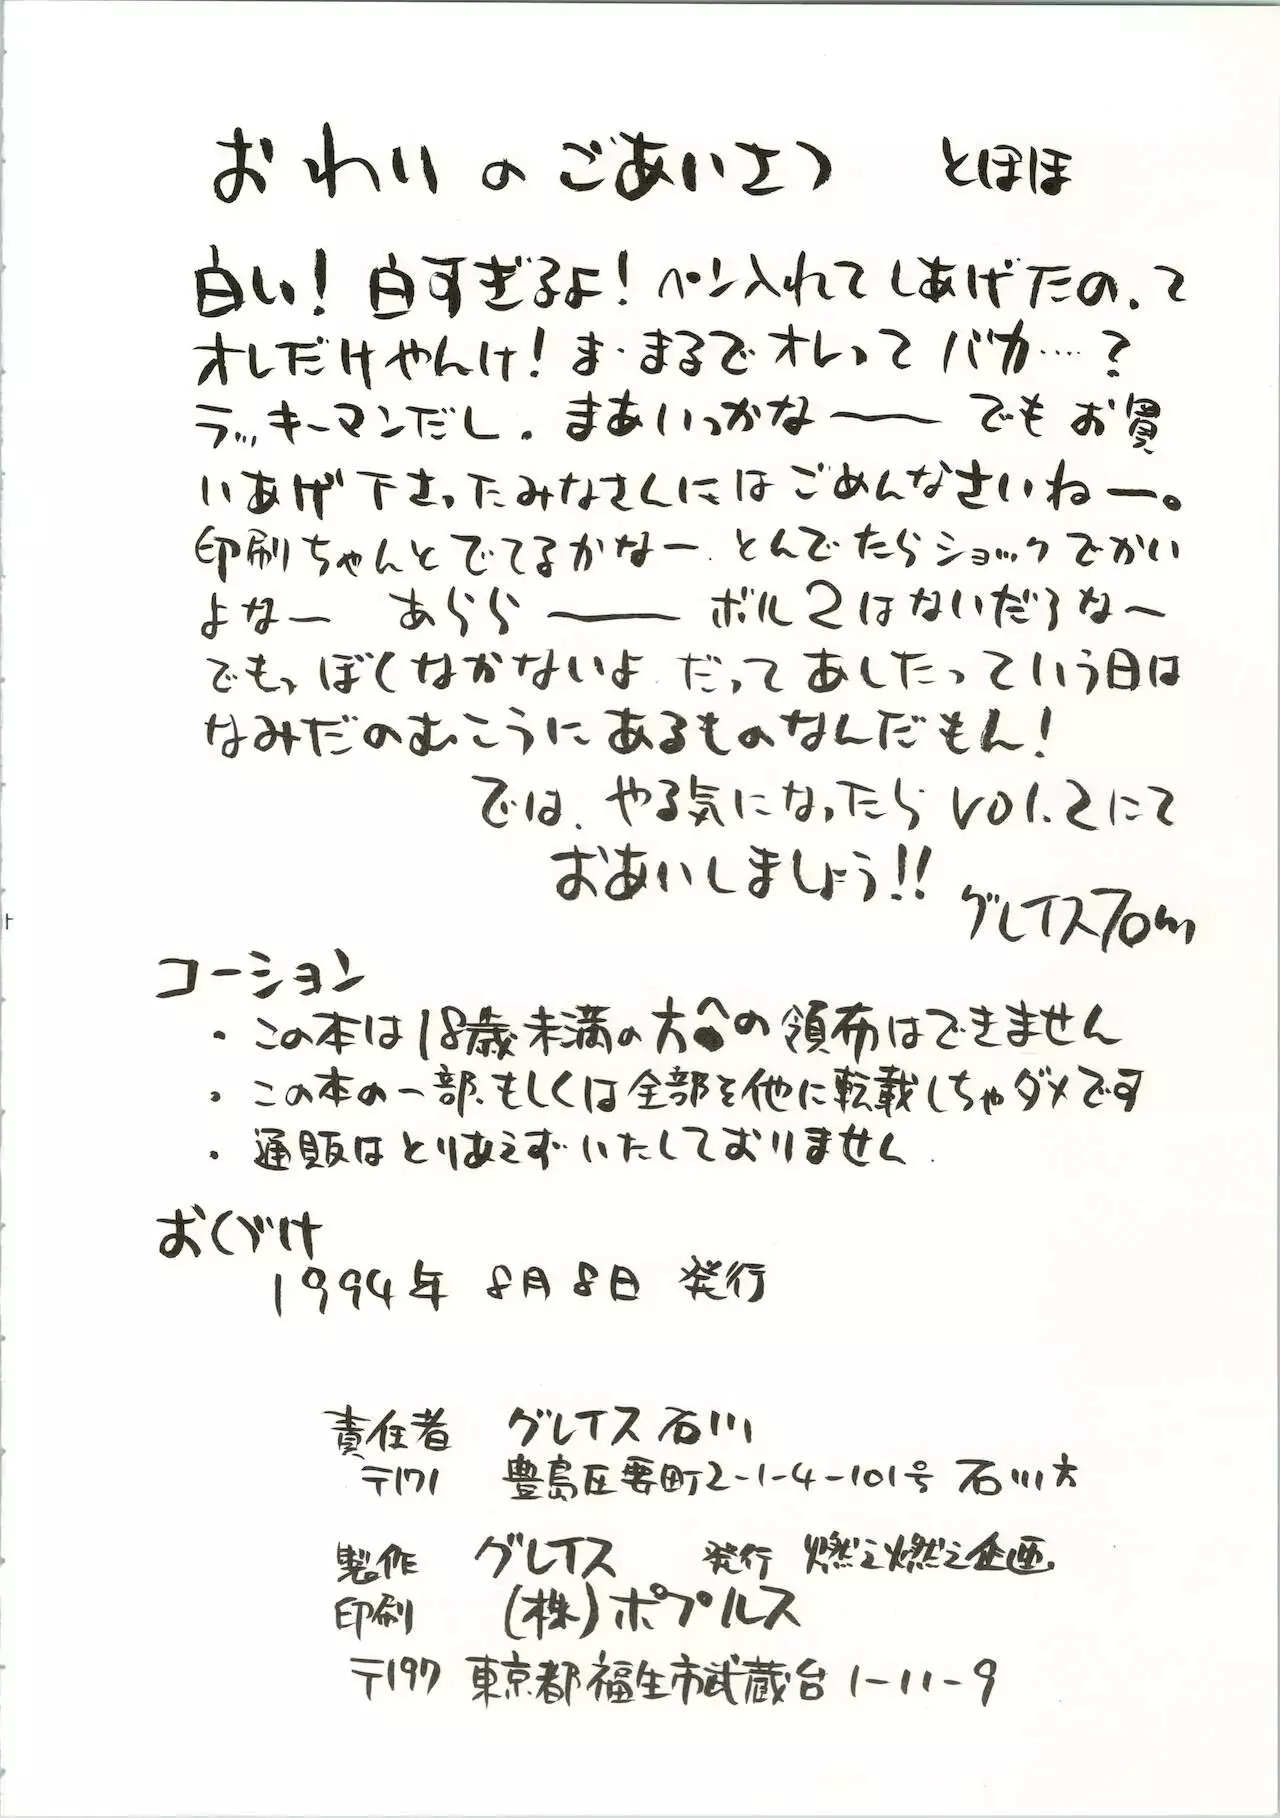 おわりのごあいさつ　とほほ
白い！白すぎるよ！ペン入れてしあげたの、て
オレだけやんけ！ま・まるでオレってバカ‥‥？
ラッキーマンだし。まあいっかなー でもお買
いあげ下さったみなさんにはごめんなさいねー。
印刷ちゃんとでてるかなー とんでたらショックでかい
よなー　あらら ー ボル2はないだろなー
でもっぼくなかないよ だってあしたっていう日は
なみだのむこうにあるものなんだもん！
では、やる気になったら vol.2にて
おあいしましょう!!
グレイス
コーション
・この本は18歳未満の方への領布はできません
・この本の一部、もしくは全部を他に転載しちゃダメです
・通販はとりあえずいたしておりません
おくづけ
1994年 8月8日 発行
責任者　グレイス石川
〒171　豊島区要町2-1-4-101号 石川方
製作　グレイス　発行　燃え燃え企画
印刷　(株)ポプルス
〒197 東京都福生市武蔵台1-11-9